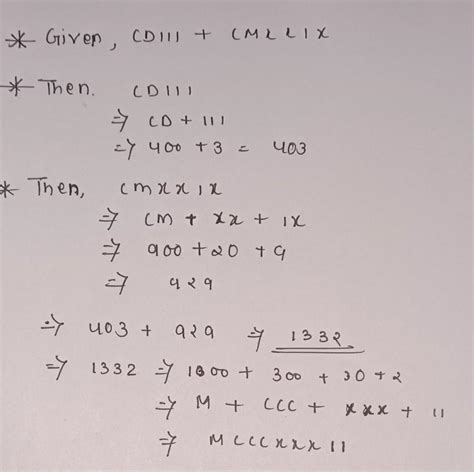 * Given, CDIII + CMXXIX
* Then. CDIII
⇒ CD + III
⇒ 400 + 3 = 403
* Then, CMXXIX
⇒ CM + XX + IX
⇒ 900 + 20 + 9
⇒ 929
⇒ 403 + 929 ⇒ 1332.
⇒ 1332 ⇒ 1000 + 300 + 30 + 2
⇒ M + CCC + XXX + II
⇒ MCCCXXXII